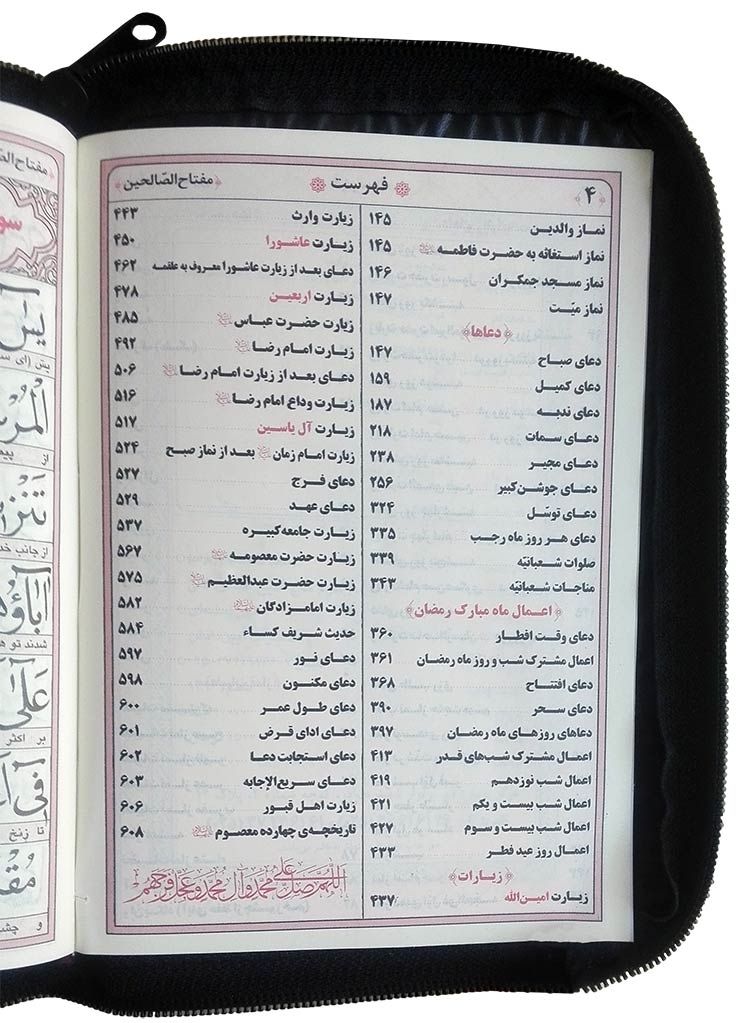 ۴ فهرست مفتاح‌الصّالحین
نماز والدین ۱۴۵
نماز استغاثه به حضرت فاطمه ۱۴۵
نماز مسجد جمکران ۱۴۶
نماز میّت ۱۴۷
﴿دعاها﴾
دعای صباح ۱۴۷
دعای کمیل ۱۵۹
دعای ندبه ۱۸۷
دعای سمات ۲۱۸
دعای مجیر ۲۳۸
دعای جوشن‌کبیر ۲۵۶
دعای توسّل ۳۲۴
دعای هر روز ماه رجب ۳۳۵
صلوات شعبانیّه ۳۳۹
مناجات شعبانیّه ۳۴۳
﴿اعمال ماه مبارک رمضان﴾
دعای وقت افطار ۳۶۰
اعمال مشترک شب و روز ماه رمضان ۳۶۱
دعای افتتاح ۳۶۸
دعای سحر ۳۹۰
دعاهای روزهای ماه رمضان ۳۹۷
اعمال مشترک شب‌های قدر ۴۱۳
اعمال شب نوزدهم ۴۱۹
اعمال شب بیست و یکم ۴۲۱
اعمال شب بیست و سوم ۴۲۷
اعمال روز عید فطر ۴۳۳
﴿زیارات﴾
زیارت امین‌الله ۴۳۷
زیارت وارث ۴۴۳
زیارت عاشورا ۴۵۰
دعای بعد از زیارت عاشورا معروف به علقمه ۴۶۲
زیارت اربعین ۴۷۸
زیارت حضرت عباس ۴۸۵
زیارت امام رضا ۴۹۲
دعای بعد از زیارت امام رضا ۵۰۶
زیارت وداع امام رضا ۵۱۶
زیارت آل یاسین ۵۱۷
زیارت امام زمان بعد از نماز صبح ۵۲۴
دعای فرج ۵۲۷
دعای عهد ۵۲۹
زیارت جامعه‌کبیره ۵۳۷
زیارت حضرت معصومه ۵۶۷
زیارت حضرت عبدالعظیم ۵۷۵
زیارت امامزادگان ۵۸۲
حدیث شریف کساء ۵۸۴
دعای نور ۵۹۷
دعای مکنون ۵۹۸
دعای طول عمر ۶۰۰
دعای ادای قرض ۶۰۱
دعای استجابت دعا ۶۰۲
دعای سریع‌الإجابه ۶۰۳
زیارت اهل قبور ۶۰۶
تاریخچه‌ی چهارده معصوم ۶۰۸
اللّهمّ صلّ علی محمّد وآل محمّد وعجّل فرجهم
مفتاح الصّ
سو
یس
یس (ای س
المر
از پیم
تنز
از جانب خد
اباؤه
شدند تو ه
علی
بر اکثر
فی ا
تا زنخ
مق
و چش